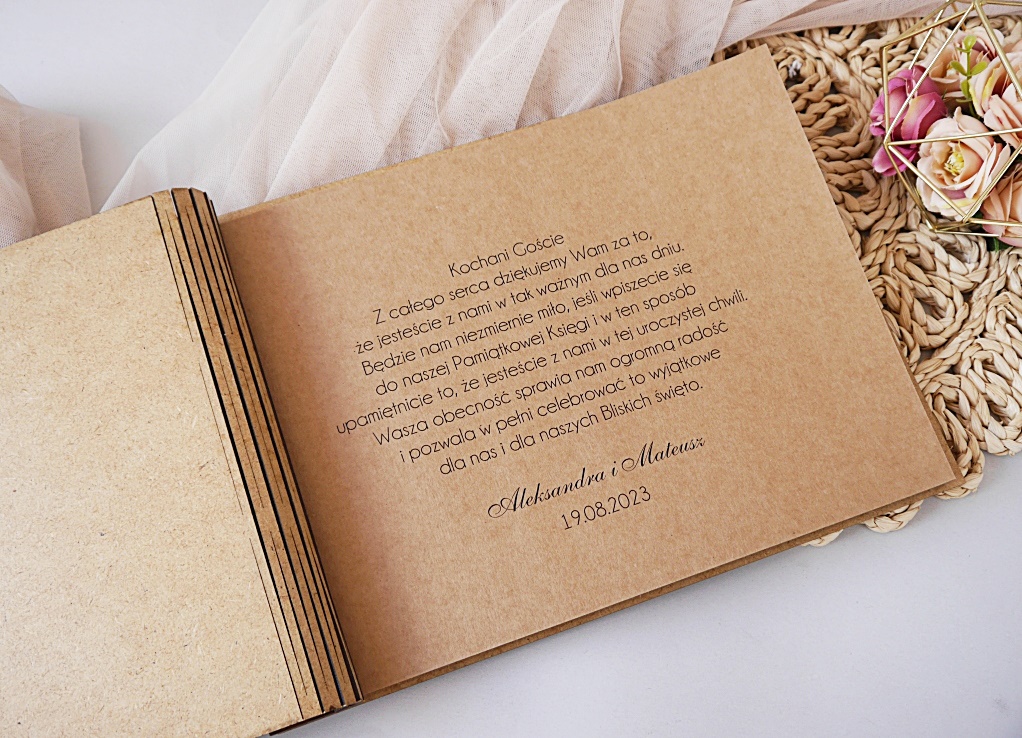 Kochani Goście
Z całego serca dziękujemy Wam za to,
że jesteście z nami w tak ważnym dla nas dniu.
Będzie nam niezmiernie miło, jeśli wpiszecie się
do naszej Pamiątkowej Księgi i w ten sposób
upamiętnicie to, że jesteście z nami w tej uroczystej chwili.
Wasza obecność sprawia nam ogromną radość
i pozwala w pełni celebrować to wyjątkowe
dla nas i dla naszych Bliskich święto.
Aleksandra i Mateusz
19.08.2023